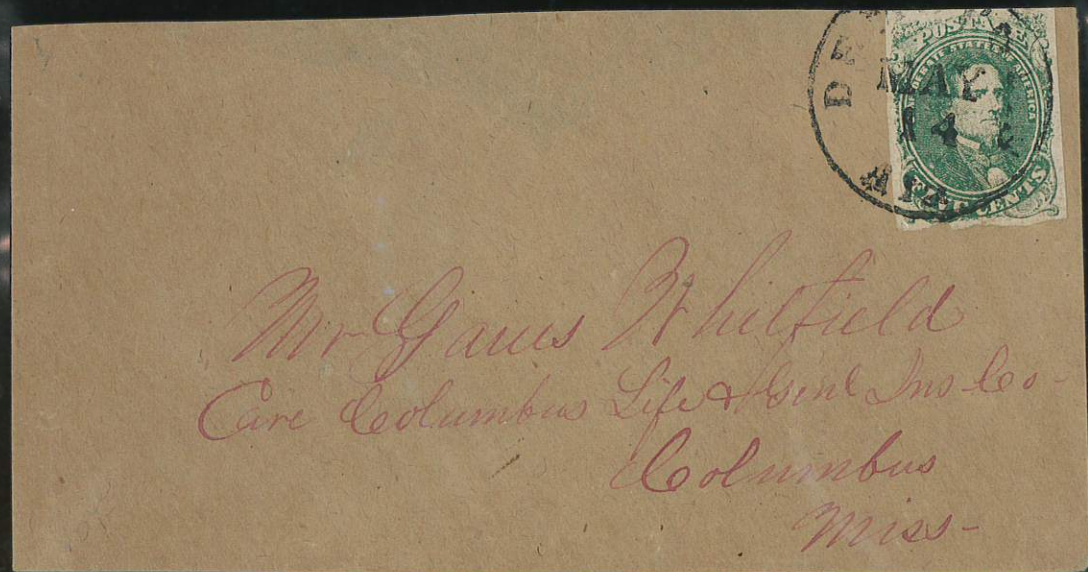 POSTAGE
CONFEDERATE STATES OF AMERICA
MAY
14
FIVE CENTS
Mr Gaius Whitfield
Care Columbus Life & Genl Ins Co-
Columbus
Miss-